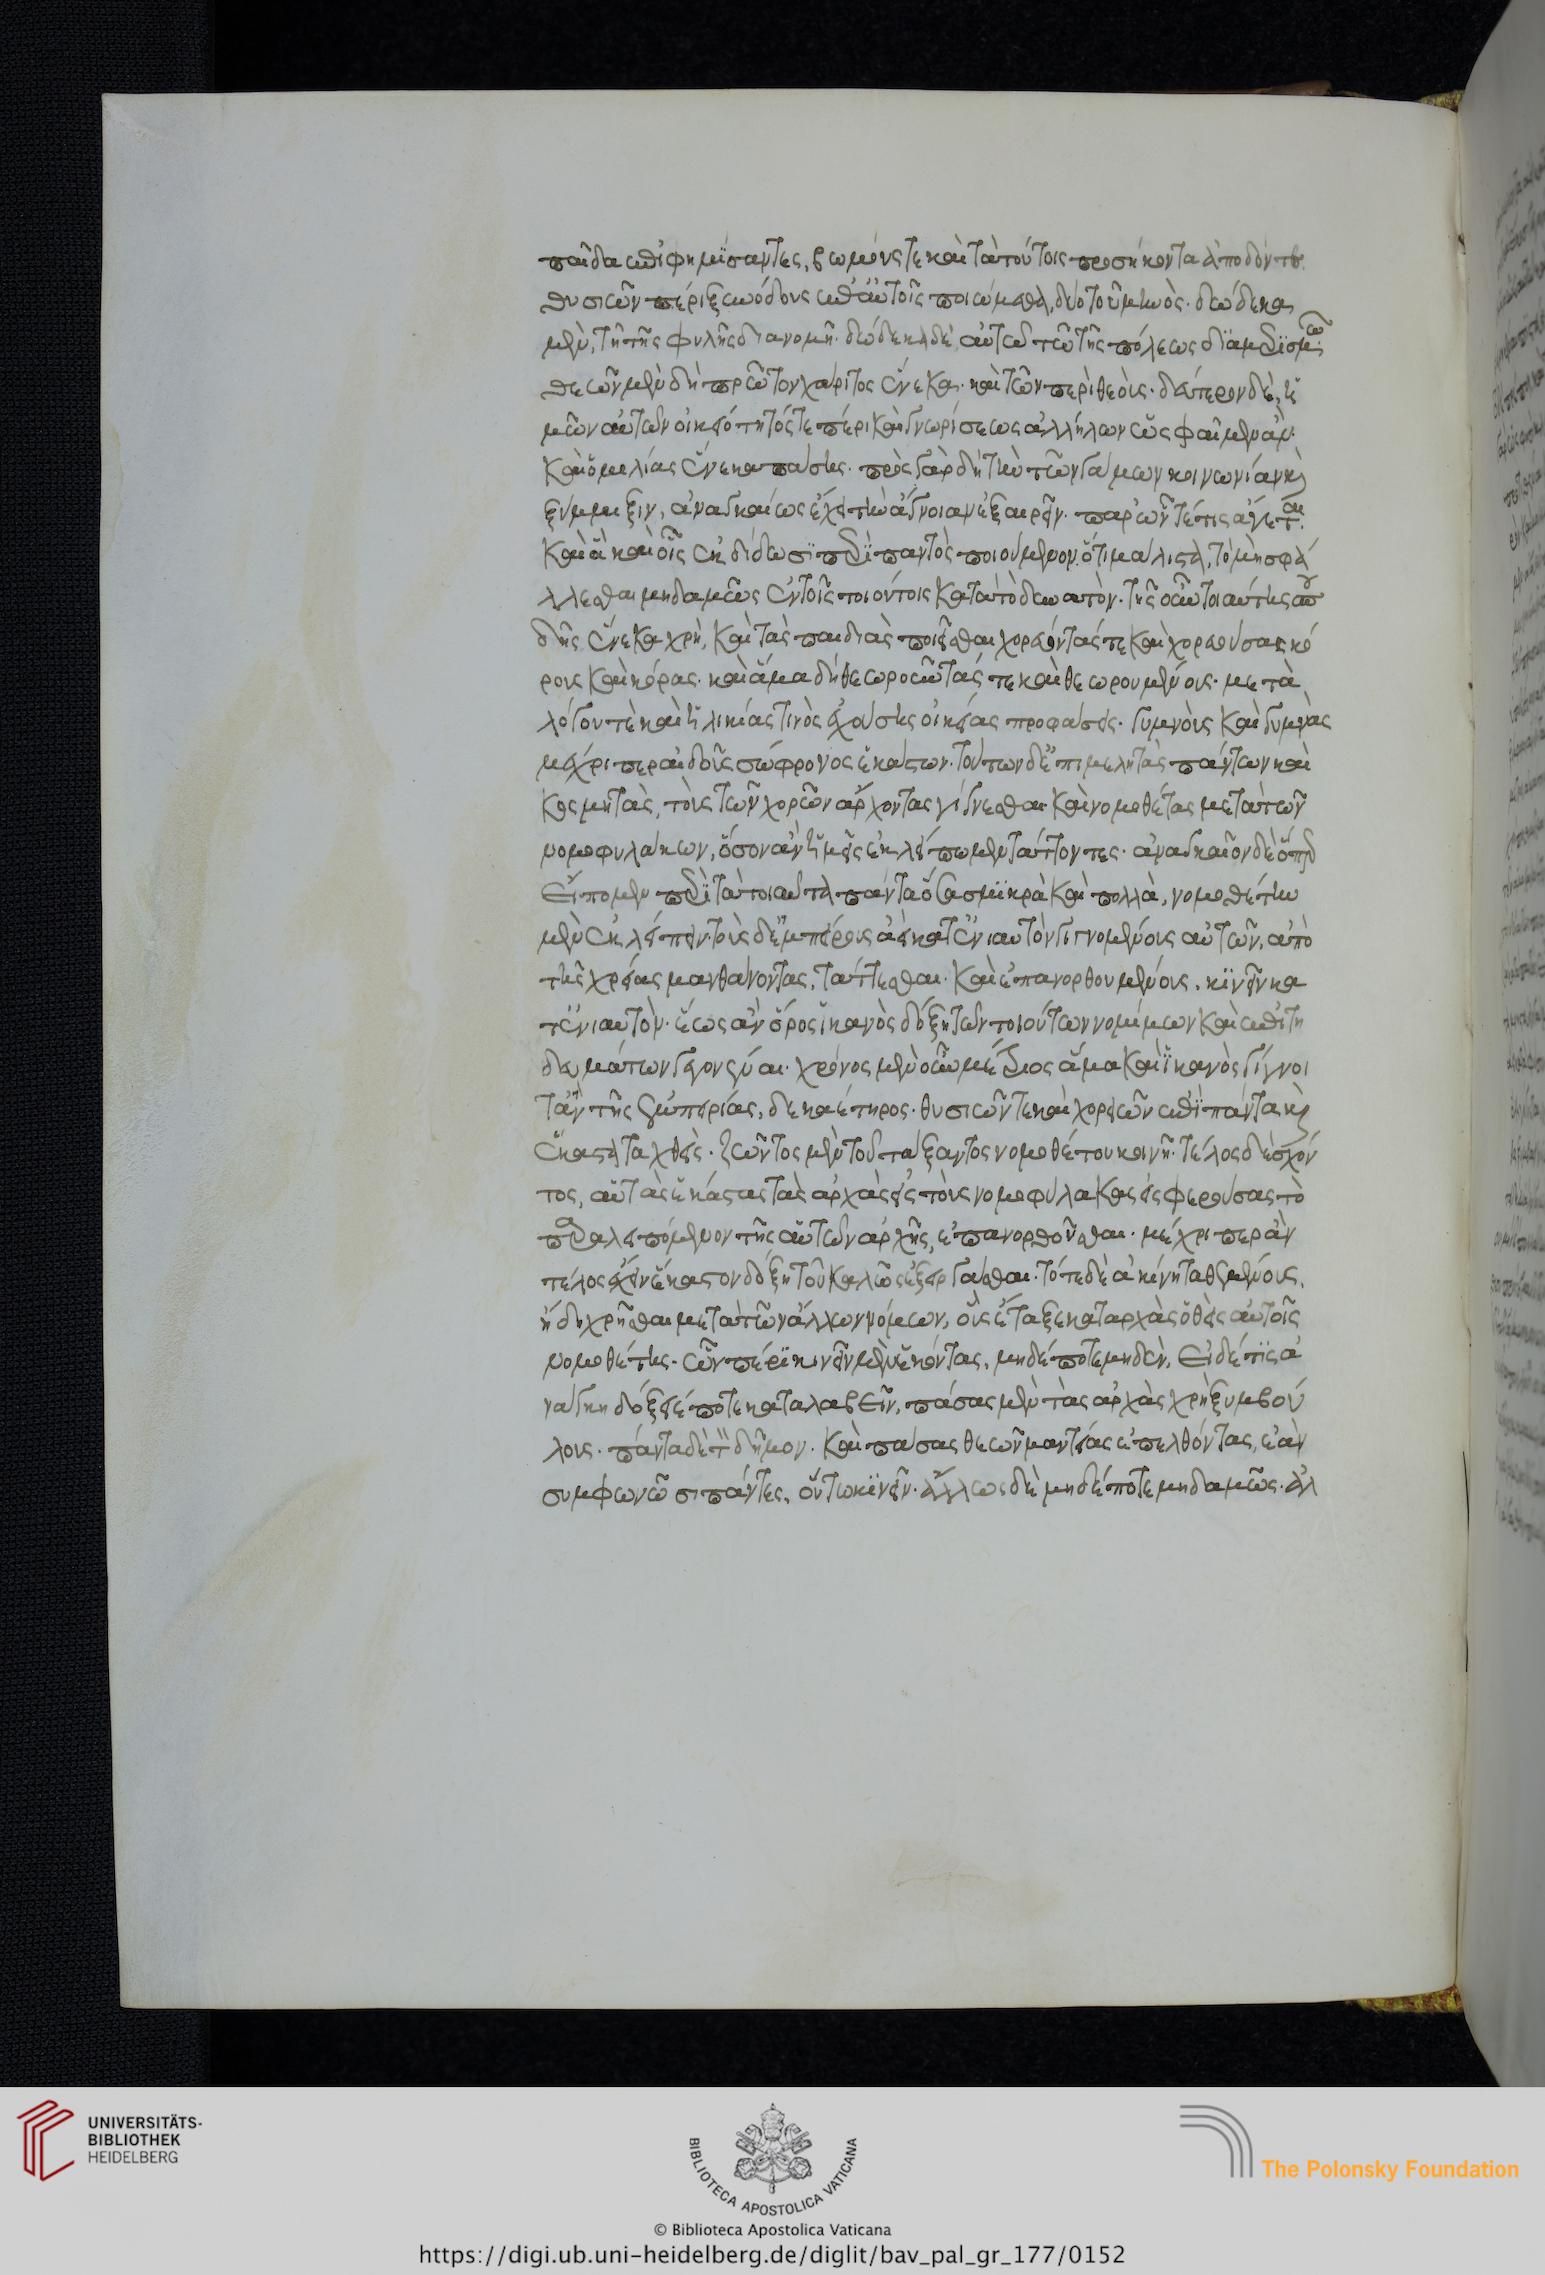 παῖδα ἐπιφημίσαντες, βωμούς τε καὶ τὰ τούτοις προσήκοντα ἀποδόντες
θυσιῶν πέρι ξυνόδους ἐπ' αὐτοῖς ποιώμεθα, δύο τοῦ μηνὸς. δώδεκα
μὲν, τῇ τῆς φυλῆς διανομῇ. δώδεκα δὲ, αὐτῷ τῷ τῆς πόλεως διαμερισμῷ
θεῶν μὲν δὴ πρῶτον χάριτος ἕνεκα. καὶ τῶν περὶ θεοὺς. δεύτερον δὲ, ἡ
μῶν αὐτῶν οἰκειότητός τε πέρι καὶ γνωρίσεως ἀλλήλων ὡς φαῖμεν ἄν.
καὶ ὁμιλίας ἕνεκα πάσης. πρὸς γὰρ δὴ τὴν τῶν γάμων κοινωνίαν καὶ
ξύμμιξιν, ἀναγκαίως ἔχει τὴν ἄγνοιαν ἐξαιρεῖν. παρ' ὧν τέ τις ἄγεται
καὶ ἃ καὶ οἷς ἐκδίδωσι περὶ παντὸς ποιούμενον. ὅτι μάλιστα, τὸ μὴ σφά
λλεσθαι μηδαμῶς ἐν τοῖς τοιούτοις κατὰ τὸ δυνατὸν. τῆς οὖν τοιαύτης σπου
δῆς ἕνεκα χρὴ, καὶ τὰς παιδιὰς ποιεῖσθαι χορεύοντάς τε καὶ χορευούσας κό
ρους καὶ κόρας. καὶ ἅμα δὴ θεωροῦντάς τε καὶ θεωρουμένους. μετὰ
λόγου τε καὶ ἡλικίας τινὸς ἐχούσης οἰκείας προφάσεις. γυμνοὺς καὶ γυμνὰς
μέχρι περ αἰδοῦς σώφρονος ἑκάστων. τούτων δ' ἐπιμελητὰς πάντων καὶ
κοσμητὰς, τοὺς τῶν χορῶν ἄρχοντας γίγνεσθαι καὶ νομοθέτας μετὰ τῶν
νομοφυλάκων, ὅσον ἂν ἡμεῖς ἐκλείπωμεν τάττοντες. ἀναγκαῖον δὲ ὅπερ
εἴπομεν περὶ τὰ τοιαῦτα πάντα ὅσα σμικρὰ καὶ πολλὰ, νομοθέτην
μὲν ἐκλείπειν. τοὺς δ' ἐμπείρους ἀεὶ κατ' ἐνιαυτὸν γιγνομένους αὐτῶν, ἀπὸ
τῆς χρείας μανθάνοντας, τάττεσθαι. καὶ ἐπανορθουμένους. κινεῖν κα
τ' ἐνιαυτὸν. ἕως ἂν ὅρος ἱκανὸς δόξῃ τῶν τοιούτων νομίμων καὶ ἐπιτη
δευμάτων γεγονέναι. χρόνος μὲν οὖν μέτριος ἅμα καὶ ἱκανὸς γίγνοι
τ' ἂν τῆς ἐμπειρίας, δεκαέτηρος. θυσιῶν τε καὶ χορειῶν ἐπὶ πάντα καὶ
ἕκαστα ταχθεὶς. ζῶντος μὲν τοῦ τάξαντος νομοθέτου κοινῇ. τέλος δὲ σχόν
τος, αὐτὰς ἑκάστας τὰς ἀρχὰς εἰς τοὺς νομοφύλακας εἰσφερούσας τὸ
παραλειπόμενον τῆς αὑτῶν ἀρχῆς, ἐπανορθοῦσθαι. μέχρι περ ἂν
τέλος ἔχειν ἕκαστον δόξῃ τοῦ καλῶς ἐξειργάσθαι. τότε δὲ ἀκίνητα θεμένους,
ἤδη χρῆσθαι μετὰ τῶν ἄλλων νόμων, οὓς ἔταξε κατ' ἀρχὰς ὁ θεὶς αὐτοῖς
νομοθέτης. ὧν πέρι κινεῖν μὲν ἑκόντας, μηδέποτε μηδὲν. εἰ δέ τις ἀ
νάγκη δόξειέ ποτε καταλαβεῖν, πάσας μὲν τὰς ἀρχὰς χρὴ ξυμβού
λους. πάντα δὲ τὸν δῆμον. καὶ πάσας θεῶν μαντείας ἐπελθόντας, ἐὰν
συμφωνῶσι πάντες, οὕτω κινεῖν. ἄλλως δὲ μηδέποτε μηδαμῶς. ἀλ
UNIVERSITÄTS-
BIBLIOTHEK
HEIDELBERG
BIBLIOTECA APOSTOLICA VATICANA
The Polonsky Foundation
© Biblioteca Apostolica Vaticana
https://digi.ub.uni-heidelberg.de/diglit/bav_pal_gr_177/0152